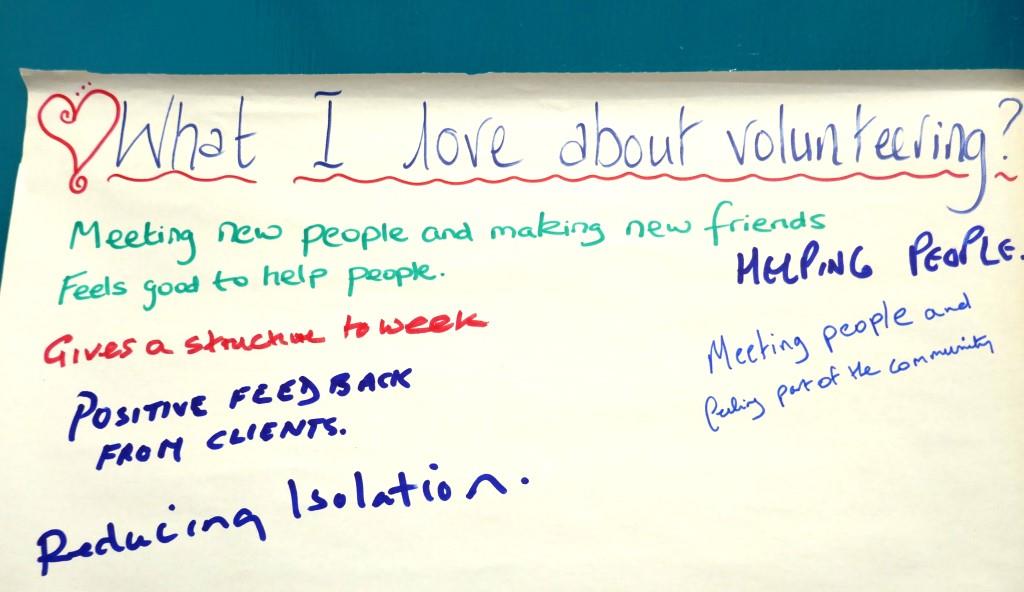 What I love about volunteering?
Meeting new people and making new friends
Feels good to help people.
Gives a structure to week
POSITIVE FEEDBACK
FROM CLIENTS.
Reducing Isolation.
HELPING PEOPLE.
Meeting people and
feeling part of the community